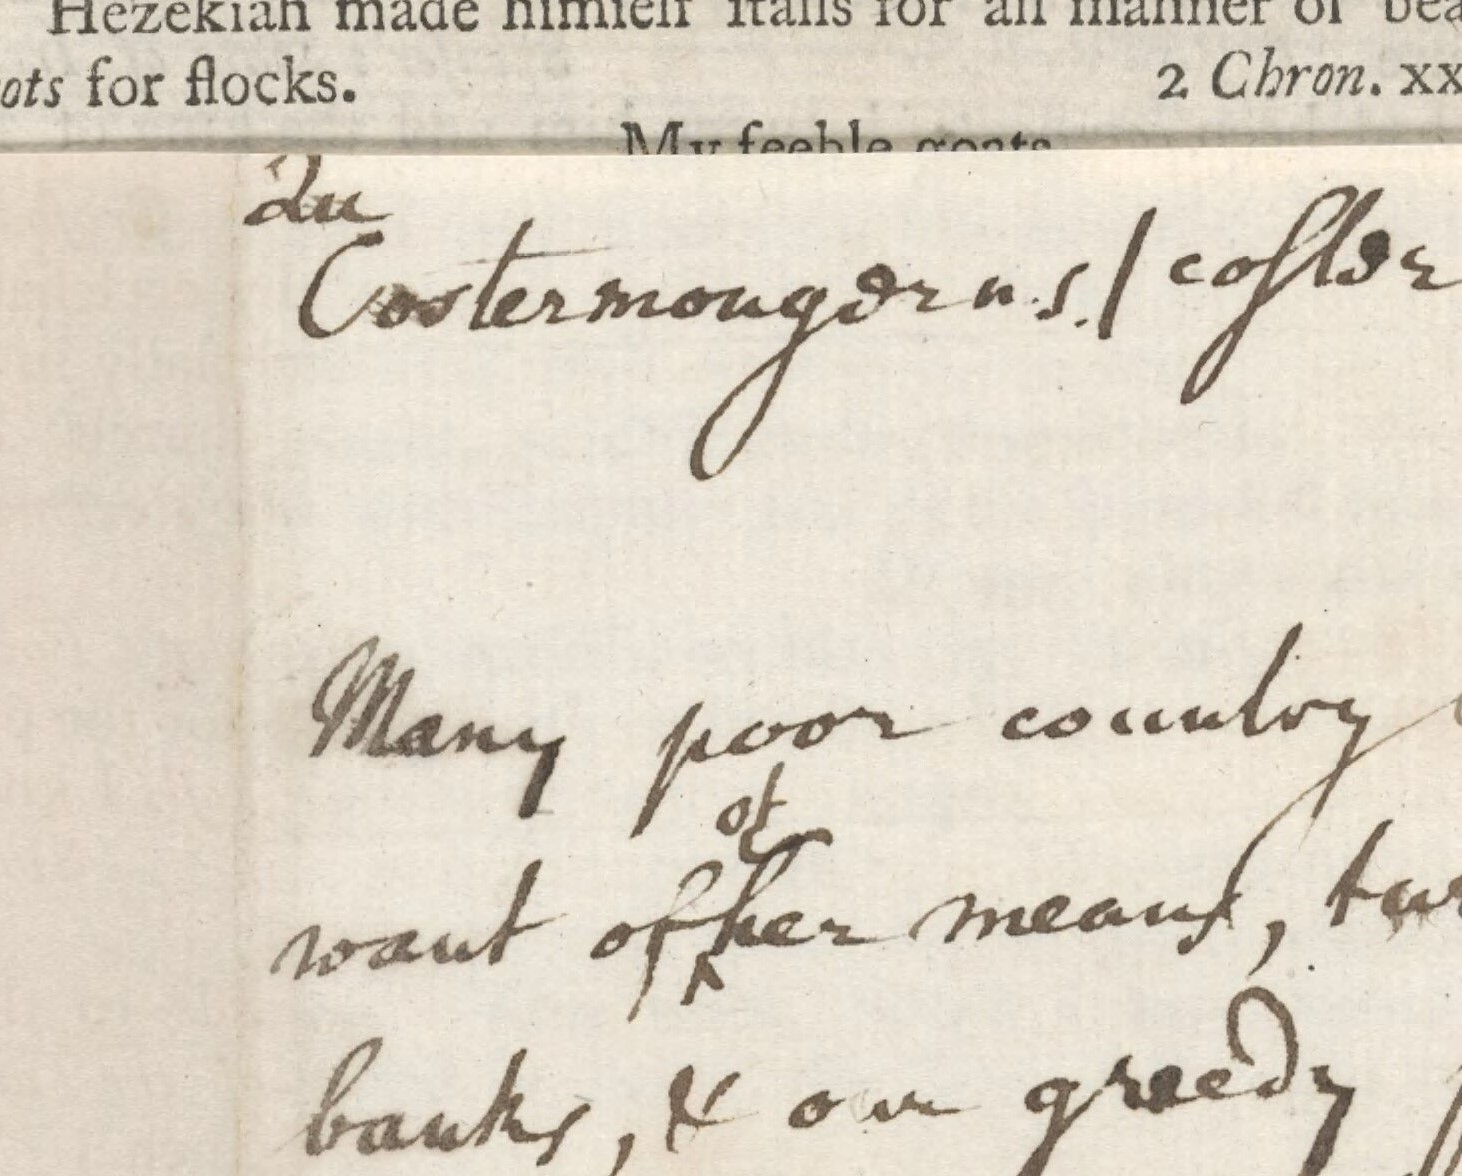 Hezekiah made himſelf ſtalls for all manner of bea
ots for flocks. 2 Chron. xx
My feeble goats
Qu
Costermongerns./ coſter
Many poor country
want of other means, tur
banks, & our greedy